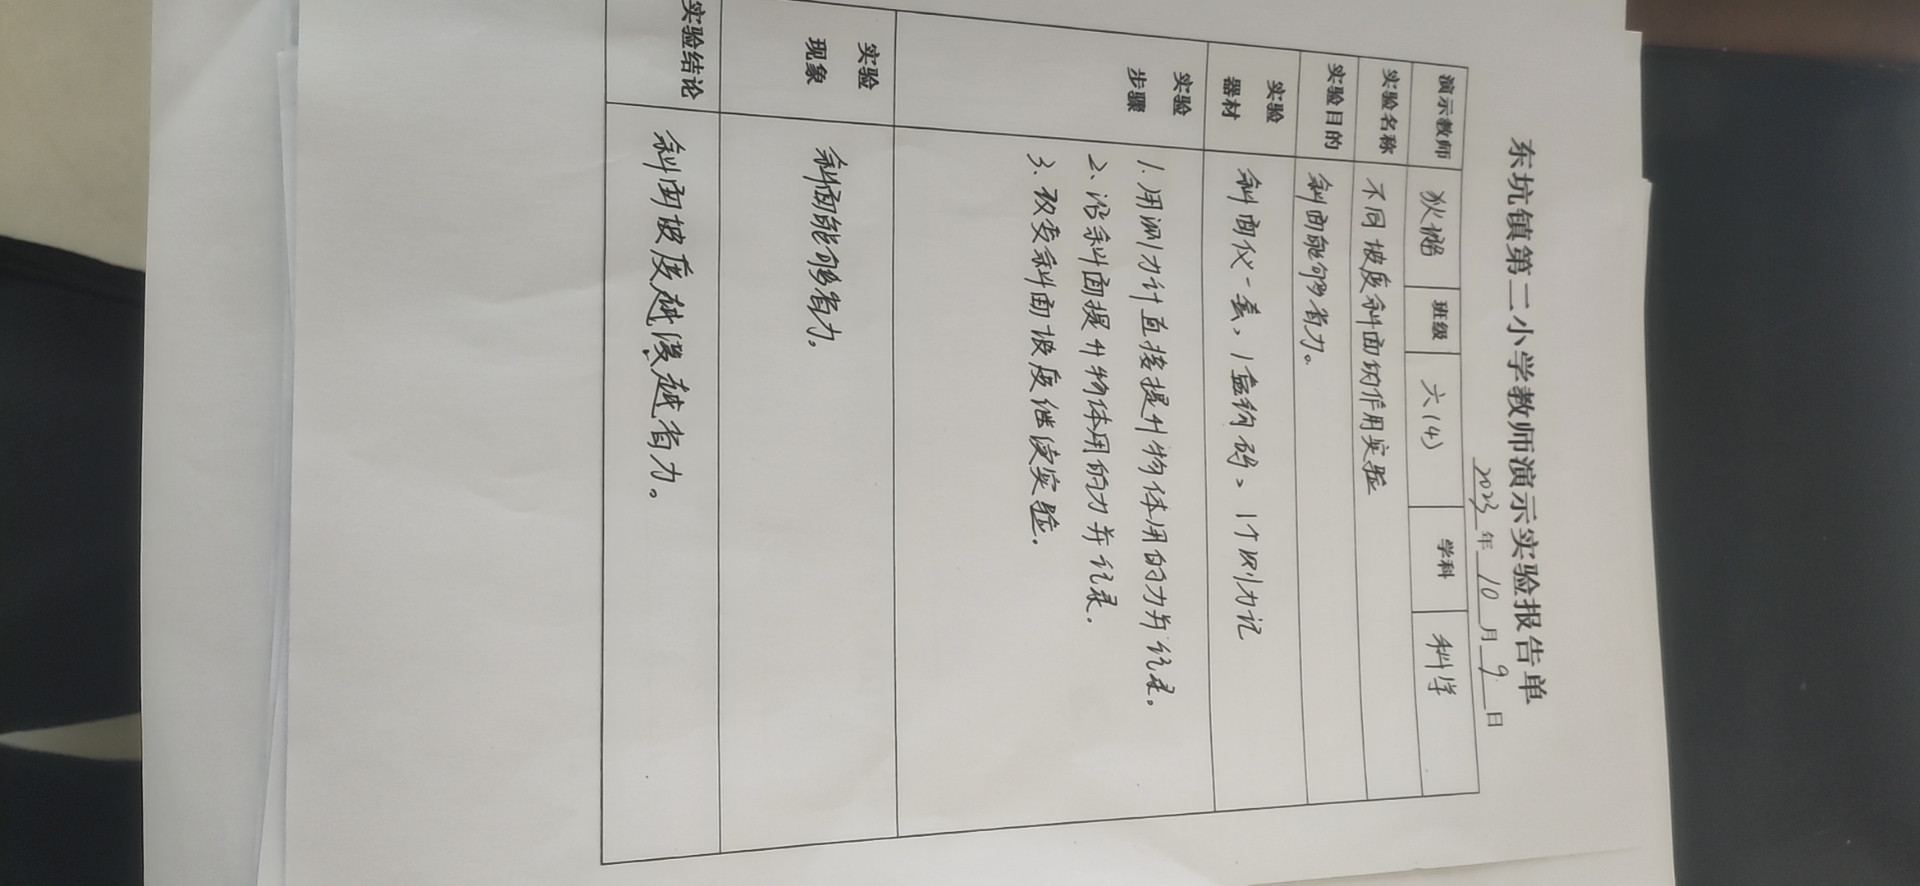 东坑镇第二小学教师演示实验报告单
2023年10月9日
演示教师 狄 班级 六(4) 学科 科学
实验名称 不同坡度斜面的作用实验
实验目的 斜面能够省力。
实验器材 斜面仪一套、1盒钩码、1个测力记
实验步骤 1.用测力计直接提升物体用的力并记录。
2.沿斜面提升物体用的力并记录.
3.改变斜面坡度继续实验.
实验现象 斜面能够省力。
实验结论 斜面坡度越缓越省力。